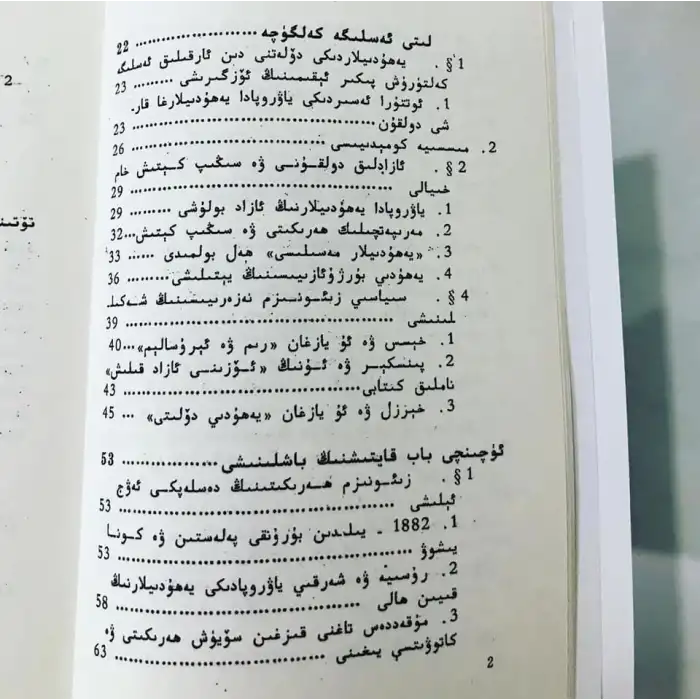 لىتى ئەسلىگە كەلگۈچە ................ 22
§1 . يەھۇدىيلاردىكى دۆلەتنى دىن ئارقىلىق ئەسلىگە
كەلتۈرۈش پىكىر ئېقىمىنىڭ ئۆزگىرىشى ......... 23
1. ئوتتۇرا ئەسىردىكى ياۋروپادا يەھۇدىيلارغا قار.
شى دولقۇن .................................. 23
2. مىسسىيە كومېدىيىسى ...................... 26
§2 . ئازادلىق دولقۇنى ۋە سىڭىپ كېتىش خام
خىيالى ..................................... 29
1. ياۋروپادا يەھۇدىيلارنىڭ ئازاد بولۇشى ......... 29
2. مەرىپەتچىلىك ھەرىكىتى ۋە سىڭىپ كېتىش... 32
3. «يەھۇدىيلار مەسىلىسى» ھەل بولمىدى ...... 33
4. يەھۇدىي بۇرژۇئازىيىسىنىڭ يېتىلىشى ......... 36
§4 . سىياسىي زىئونىزم نەزەرىيىسىنىڭ شەكىل
لىنىشى ..................................... 39
1. خېسى ۋە ئۇ يازغان «رىم ۋە ئېرۇسالېم»... 40
2. پىنسكېر ۋە ئۇنىڭ «ئۆزىنى ئازاد قىلىش»
ناملىق كىتابى ............................... 43
3. خېرزل ۋە ئۇ يازغان «يەھۇدىي دۆلىتى» ... 45
ئۈچىنچى باب قايتىشنىڭ باشلىنىشى ............ 53
§1 . زىئونىزم ھەرىكىتىنىڭ دەسلەپكى ئەۋج
ئېلىشى ..................................... 53
1. 1882 ـ يىلدىن بۇرۇنقى پەلەستىن ۋە كونا
يىشوۋ ...................................... 53
2. رۇسىيە ۋە شەرقىي ياۋروپادىكى يەھۇدىيلارنىڭ
قىيىن ھالى ................................. 58
3. مۇقەددەس تاغنى قىزغىن سۆيۈش ھەرىكىتى ۋە
كاتوۋىتسې يىغىنى ........................... 63
2
2